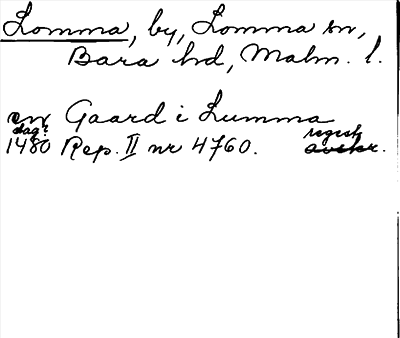 Lomma, by, Lomma sn,
Bara hd, Malm. l.
en Gaard i Lumma
dag?
1480 Rep. II nr 4760. regest
avskr.